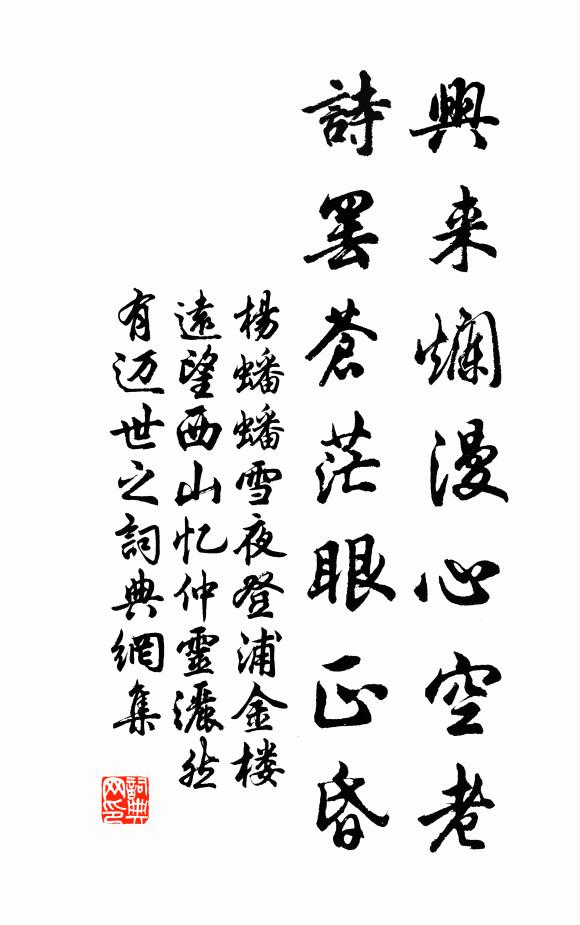 興来爛漫心空老
詩罢蒼茫眼正昏
楊蟠蟠雪夜登浦金楼
遠望西山忆仲靈灑然
有迈世之詞典網集
詞典网印